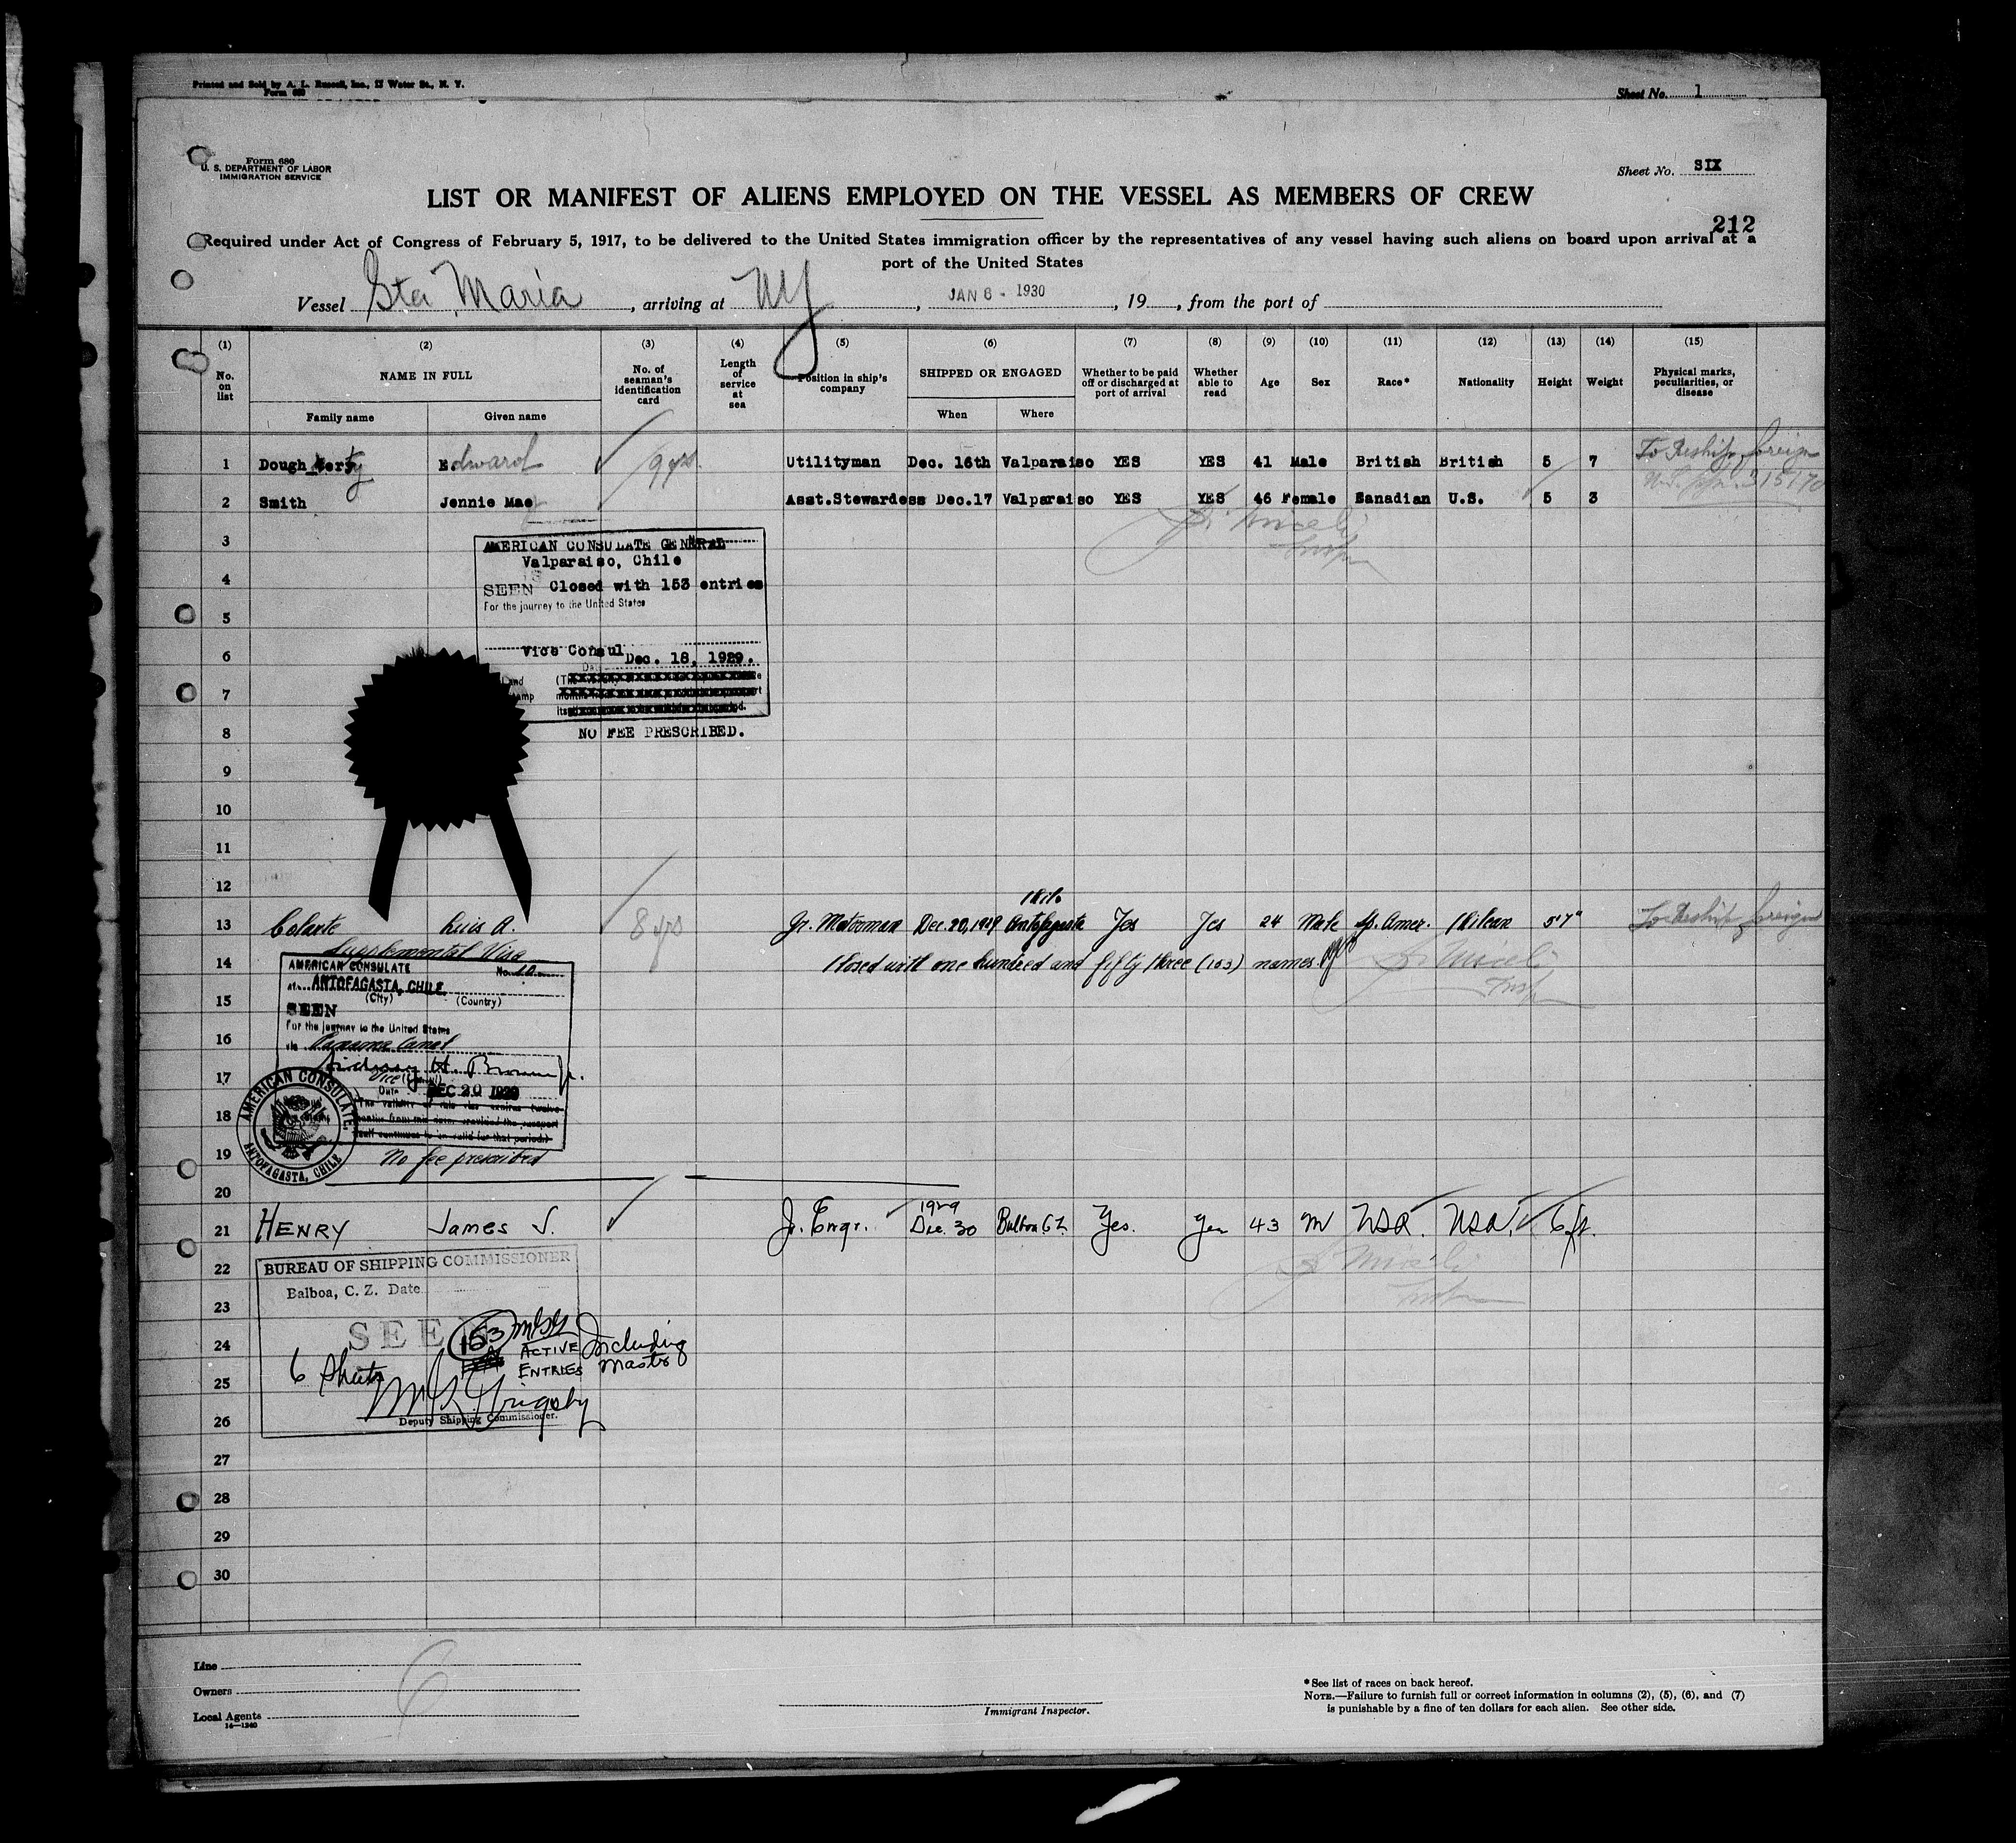 Printed and Sold by A. L. Russell, Inc., 17 Water St., N. Y.
Form 680
Sheet No. 1
Form 680
U. S. DEPARTMENT OF LABOR
IMMIGRATION SERVICE
Sheet No. SIX
LIST OR MANIFEST OF ALIENS EMPLOYED ON THE VESSEL AS MEMBERS OF CREW
212
Required under Act of Congress of February 5, 1917, to be delivered to the United States immigration officer by the representatives of any vessel having such aliens on board upon arrival at a
port of the United States
Vessel Sta Maria, arriving at NY, JAN 6 - 1930, 19, from the port of
(1) (2) (3) (4) (5) (6) (7) (8) (9) (10) (11) (12) (13) (14) (15)
No. on list
NAME IN FULL
Family name
Given name
No. of seaman's identification card
Length of service at sea
Position in ship's company
SHIPPED OR ENGAGED
When
Where
Whether to be paid off or discharged at port of arrival
Whether able to read
Age
Sex
Race*
Nationality
Height
Weight
Physical marks, peculiarities, or disease
1 Dougherty Edward 9 yrs. Utilityman Dec. 16th Valparaiso YES YES 41 Male British British 5 7 To Reship foreign
2 Smith Jennie Mae Asst.Stewardess Dec.17 Valparaiso YES YES 46 Female Canadian U.S. 5 3
3
AMERICAN CONSULATE GENERAL
Valparaiso, Chile
4
SEEN Closed with 153 entries
For the journey to the United States
5
6
Vice Consul
Dec. 18, 1929.
7
8
NO FEE PRESCRIBED.
9
10
11
12
13 Luis A. 8 yrs Jr. Motorman Dec. 20, 1929 Antofagasta Chile Yes Yes 24 Male Sp. Amer. Chilean 5'7" To Reship foreign
Supplemental Visa
14 Closed with one hundred and fifty three (153) names.
AMERICAN CONSULATE No. 10
at ANTOFAGASTA, CHILE.
(City) (Country)
15
SEEN
For the journey to the United States
16
via Panama Canal
17
Sidney H. Brown Jr.
Vice Consul
Date DEC 20 1929
18
The validity of this visa expires twelve
months from this date, provided the passport
itself continues to be valid for that period.)
AMERICAN CONSULATE, ANTOFAGASTA, CHILE
19
No fee prescribed
20
21 HENRY James J. Jr. Engr. 1929 Dec. 30 Balboa C.Z. Yes. Yes 43 M USA. USA. 6 ft.
22
BUREAU OF SHIPPING COMMISSIONER
Balboa, C. Z. Date
23
24
SEEN
153 ACTIVE ENTRIES Including Master
6 Sheets
25
26
Deputy Shipping Commissioner.
27
28
29
30
Line
Owners
Local Agents
14—1240
6
Immigrant Inspector.
*See list of races on back hereof.
NOTE.—Failure to furnish full or correct information in columns (2), (5), (6), and (7)
is punishable by a fine of ten dollars for each alien. See other side.